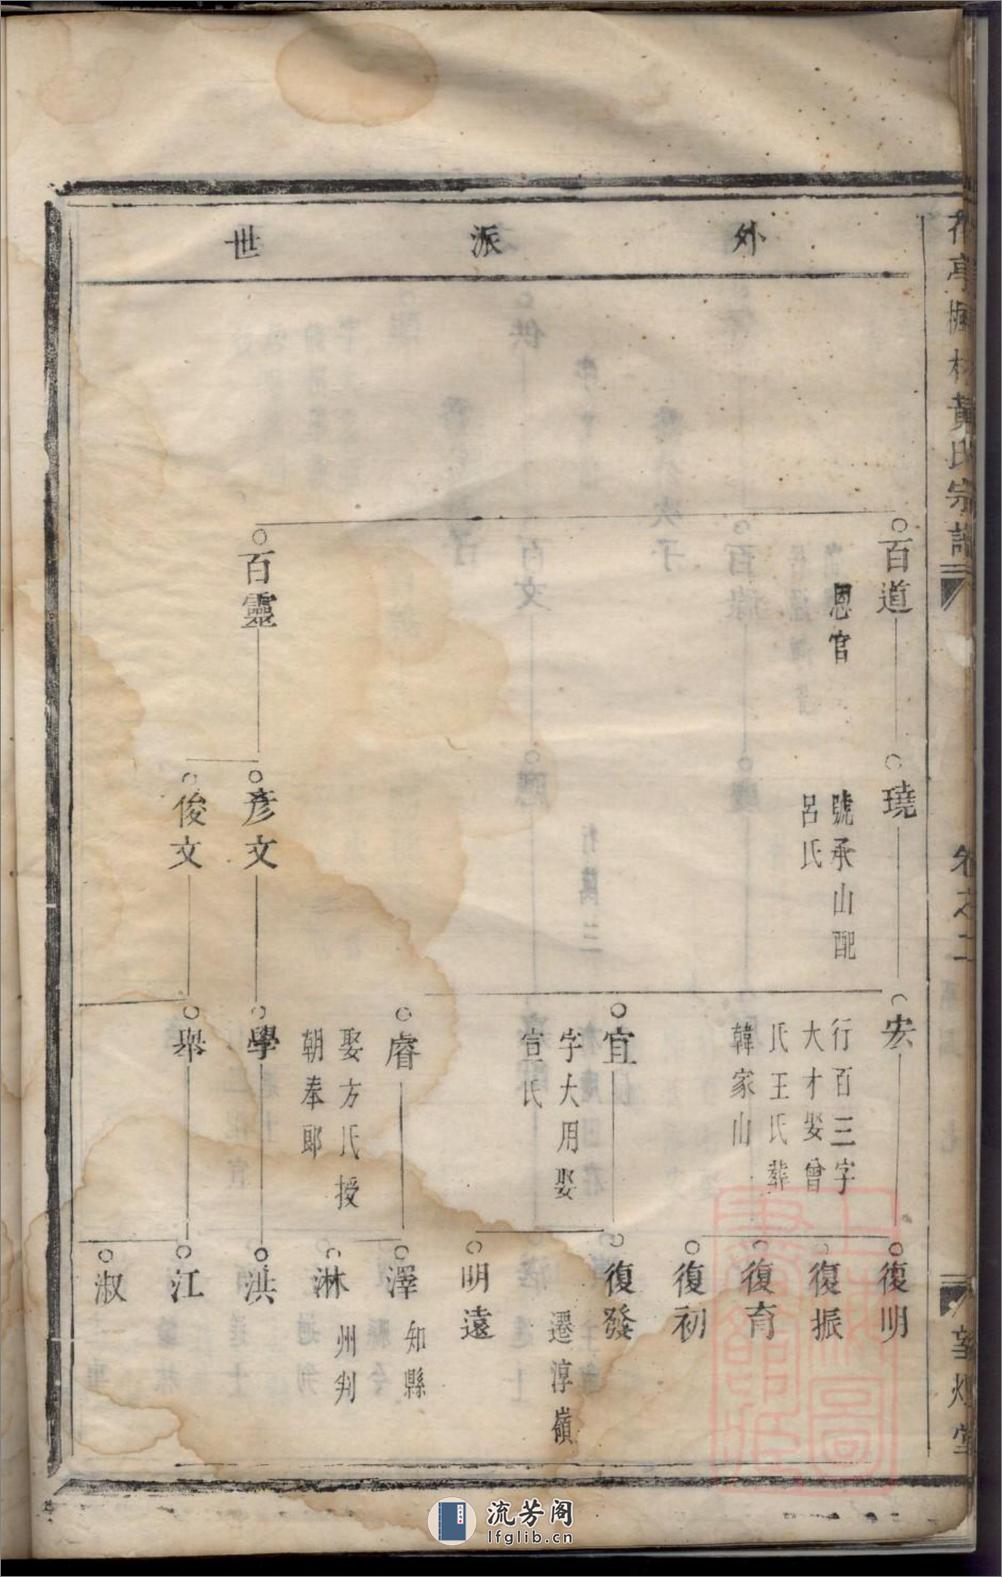 外派世
百道
恩官
百靈
璄
號承山配
呂氏
彥文
俊文
宏
行百三字
大才娶曾
氏王氏葬
韓家山
宜
字大用娶
宣氏
睿
娶方氏授
朝奉郎
學
舉
復明
復振
復育
復初
復發
遷淳嶺
明遠
澤
知縣
淋
州判
洪
江
淑
黃氏宗譜
卷之二
流芳阁
lfglib.cn